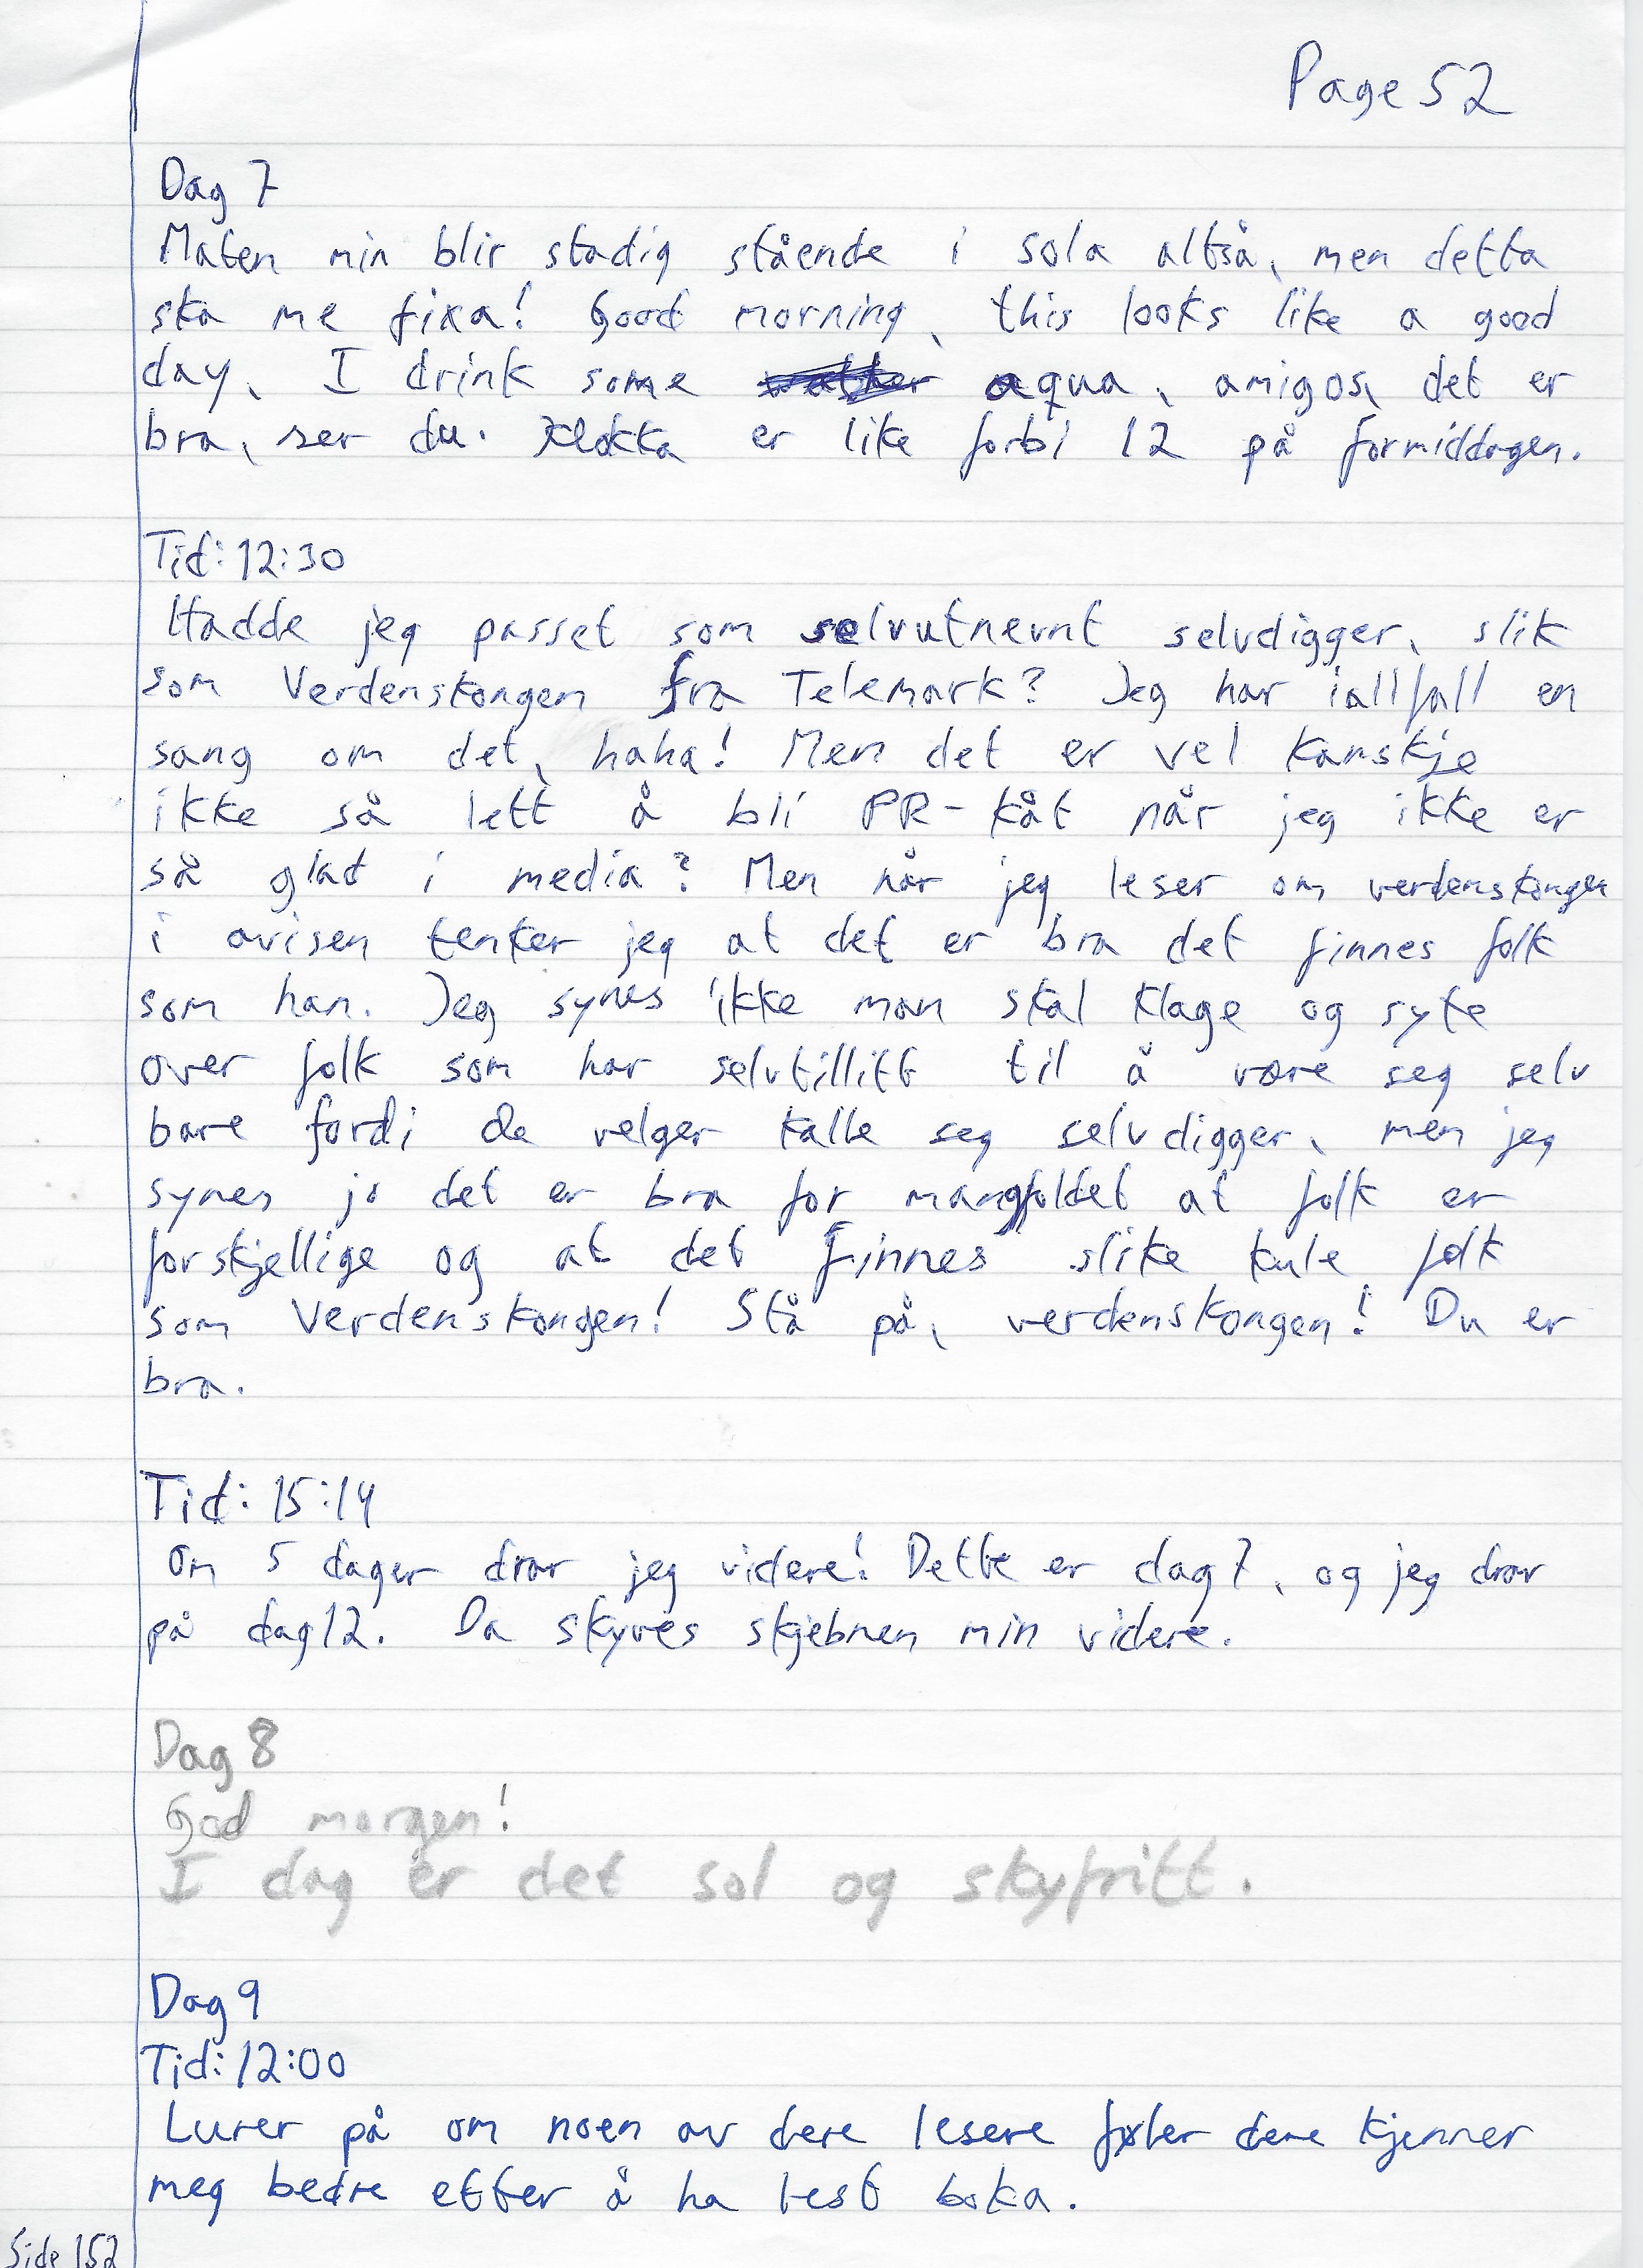 Page 52
Dag 7
Maten min blir stadig stående i sola altså, men detta
ska me fixa! Good morning, this looks like a good
day, I drink some aqua, amigos, det er
bra, ser du. Klokka er like forbi 12 på formiddagen.
Tid: 12:30
Hadde jeg passet som selvutnevnt selvdigger, slik
som Verdenskongen fra Telemark? Jeg har iallfall en
sang om det, haha! Men det er vel kanskje
ikke så lett å bli PR-kåt når jeg ikke er
så glad i media? Men når jeg leser om verdenskongen
i avisen tenker jeg at det er bra det finnes folk
som han. Jeg synes ikke man skal klage og syte
over folk som har selvtillitt til å være seg selv
bare fordi de velger kalle seg selvdigger, men jeg
synes jo det er bra for mangfoldet at folk er
forskjellige og at det finnes slike kule folk
som Verdenskongen! Stå på, verdenskongen! Du er
bra.
Tid: 15:14
Om 5 dager drar jeg videre! Dette er dag 7, og jeg drar
på dag 12. Da skyves skjebnen min videre.
Dag 8
God morgen!
I dag er det sol og skyfritt.
Dag 9
Tid: 12:00
Lurer på om noen av dere lesere føler dere kjenner
meg bedre etter å ha lest boka.
Side 152